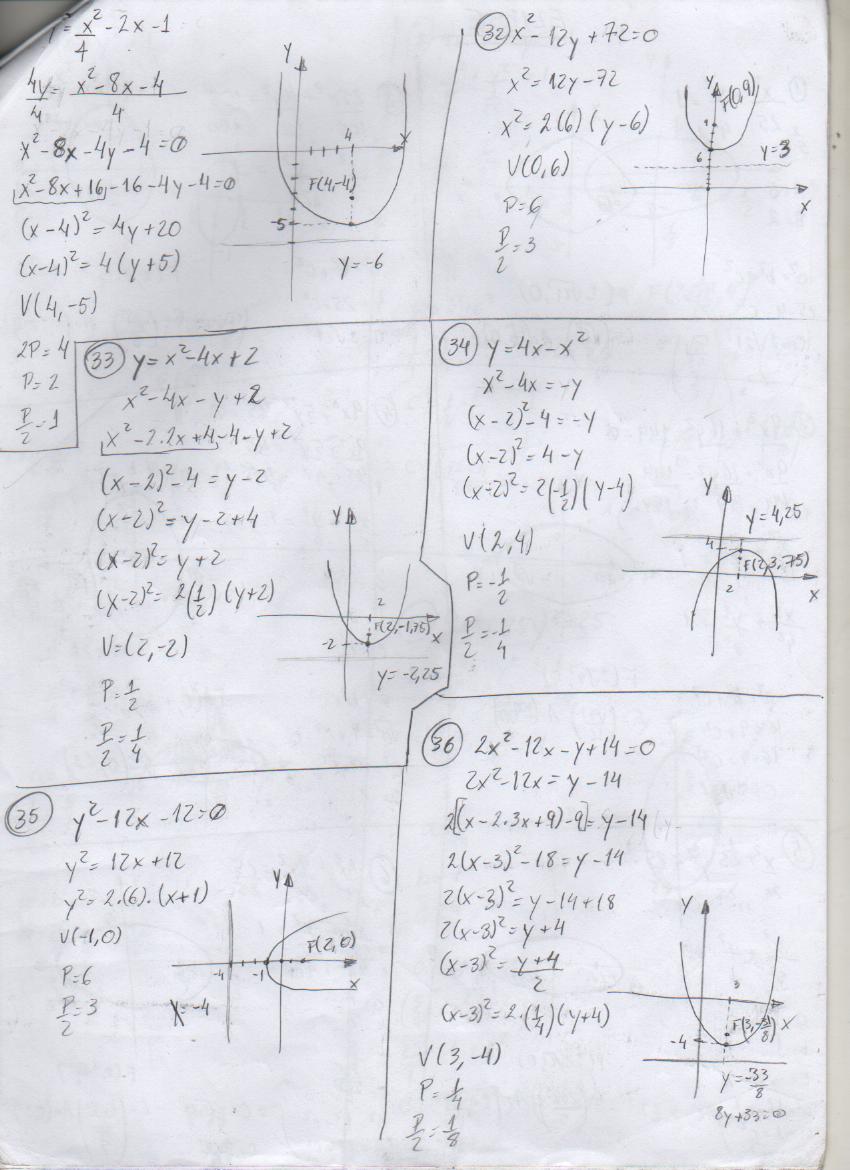 y = x²/4 - 2x - 1
4y/4 = (x² - 8x - 4)/4
x² - 8x - 4y - 4 = 0
x² - 8x + 16 - 16 - 4y - 4 = 0
(x - 4)² = 4y + 20
(x - 4)² = 4(y + 5)
V(4, -5)
2P = 4
P = 2
P/2 = 1
y
4
x
F(4, -4)
-5
y = -6
32 x² - 12y + 72 = 0
x² = 12y - 72
x² = 2(6)(y - 6)
V(0, 6)
P = 6
P/2 = 3
y
F(0, 9)
9
6
y = 3
x
33 y = x² - 4x + 2
x² - 4x - y + 2
x² - 2.2x + 4 - 4 - y + 2
(x - 2)² - 4 = y - 2
(x - 2)² = y - 2 + 4
(x - 2)² = y + 2
(x - 2)² = 2(1/2)(y + 2)
V = (2, -2)
P = 1/2
P/2 = 1/4
y
2
x
F(2, -1,75)
-2
y = -2,25
34 y = 4x - x²
x² - 4x = -y
(x - 2)² - 4 = -y
(x - 2)² = 4 - y
(x - 2)² = 2(-1/2)(y - 4)
V(2, 4)
P = -1/2
P/2 = -1/4
y
y = 4,25
4
F(2, 3,75)
2
x
35 y² - 12x - 12 = 0
y² = 12x + 12
y² = 2.(6).(x + 1)
V(-1, 0)
P = 6
P/2 = 3
y
F(2, 0)
-4
-1
x
x = -4
36 2x² - 12x - y + 14 = 0
2x² - 12x = y - 14
2[(x - 2.3x + 9) - 9] = y - 14
2(x - 3)² - 18 = y - 14
2(x - 3)² = y - 14 + 18
2(x - 3)² = y + 4
(x - 3)² = (y + 4)/2
(x - 3)² = 2.(1/4)(y + 4)
V(3, -4)
P = 1/4
P/2 = 1/8
y
3
x
F(3, -31/8)
-4
y = -33/8
8y + 33 = 0